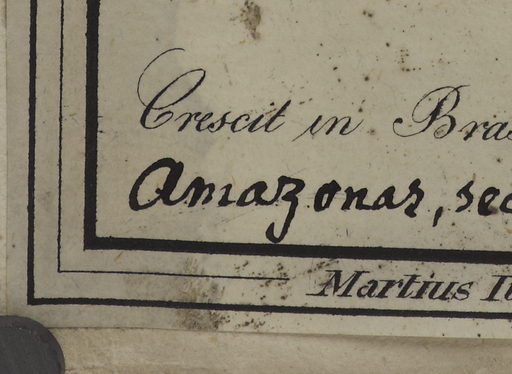 Crescit in Bras
Amazonas, sec
Martius It